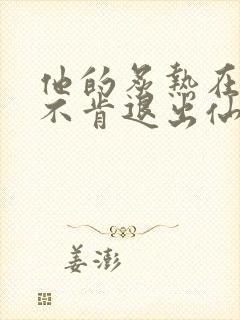 他的炙热在
不肯退出仙
姜澎